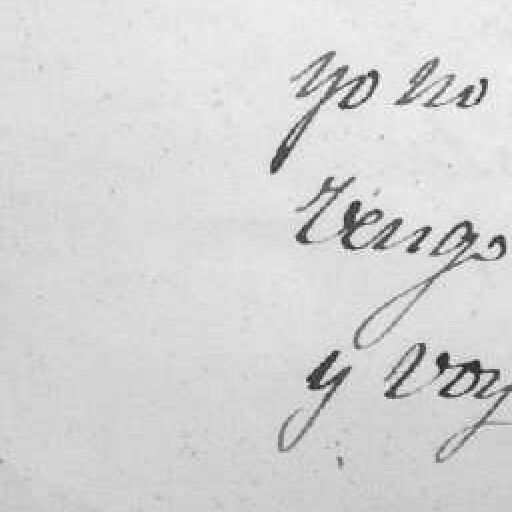 yo no
Vengo
y voy